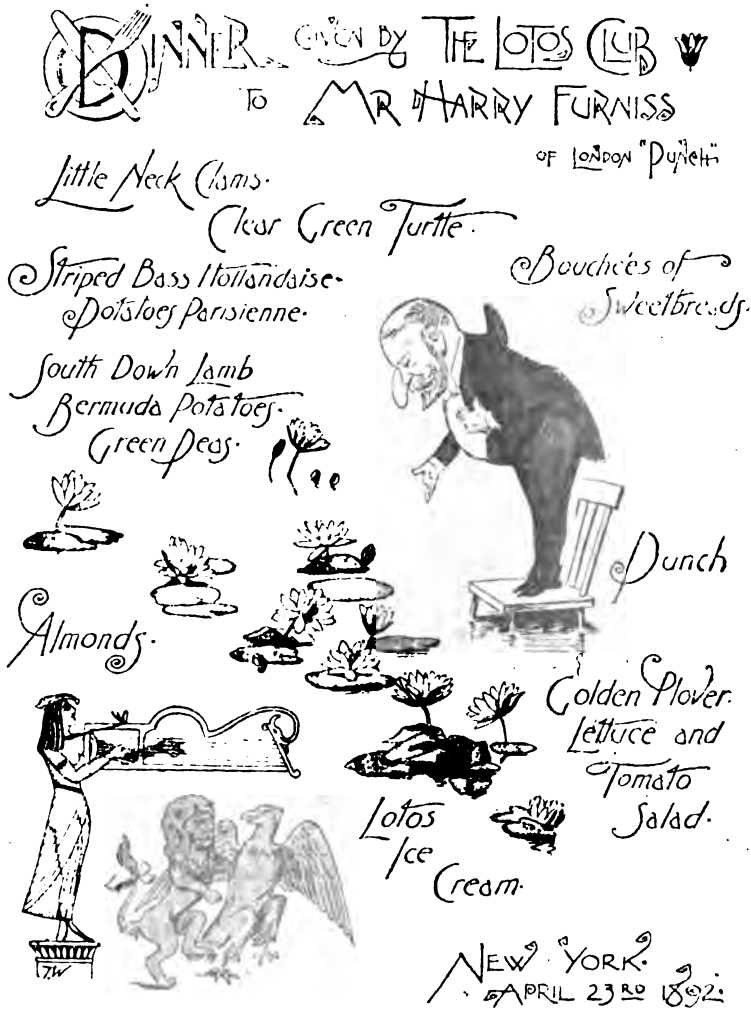 DINNER GIVEN BY THE LOTOS CLUB
TO MR HARRY FURNISS
OF LONDON "PUNCH"
Little Neck Clams.
Clear Green Turtle.
Striped Bass Hollandaise.
Potatoes Parisienne.
Bouchées of
Sweetbreads.
South Down Lamb
Bermuda Potatoes.
Green Peas.
Punch
Almonds.
Golden Plover.
Lettuce and
Tomato
Salad.
Lotos
Ice
Cream.
J.W
NEW YORK.
APRIL 23RD 1892.